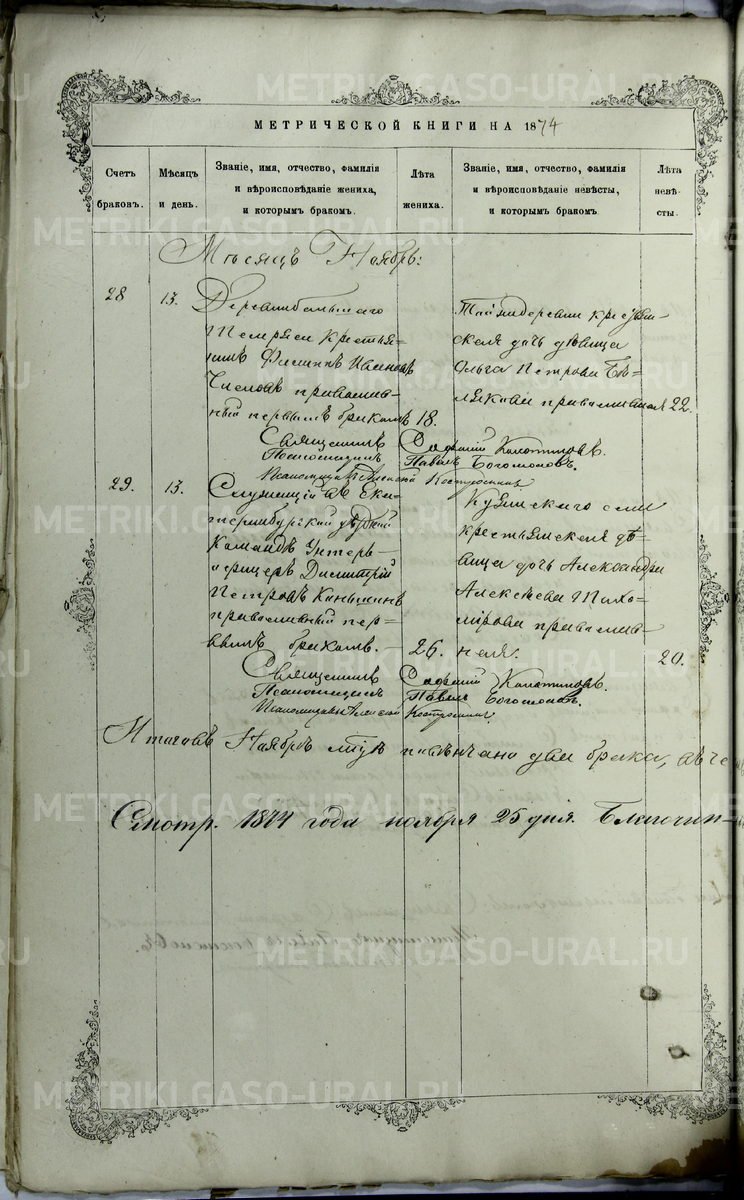 МЕТРИЧЕСКОЙ КНИГИ НА 1874
Счетъ браковъ.
Мѣсяцъ и день.
Званіе, имя, отчество, фамилія
и вѣроисповѣданіе жениха,
и которымъ бракомъ.
Лѣта жениха.
Званіе, имя, отчество, фамилія
и вѣроисповѣданіе невѣсты,
и которымъ бракомъ
Лѣта невѣсты.
Мѣсяцъ Ноябрь:
28
13.
Деревни
крестья=
нинъ Филиппъ Ивановъ
Числовъ православ-
ный первымъ бракомъ
18.
Той же деревни крестьян-
ская дочь дѣвица
Ольга Петрова Бѣ-
лякова православная
22.
Священникъ
Псаломщикъ Павелъ Богомоловъ.
Псаломщикъ Алексій Костромин
29.
13.
Служащій въ Ека-
теринбургской уѣздной
Командѣ Унтеръ-
офицеръ Димитрій
Петровъ Каньшинъ
православный пер-
вымъ бракомъ.
26.
села
крестьянская дѣ-
вица дочь Александра
Алексѣева Тихо=
мірова православ-
ная.
20.
Священникъ
Псаломщикъ Павелъ Богомоловъ.
Псаломщикъ Алексій Костромин
Итого въ Ноябрѣ м҃цѣ повѣнчано два брака, въ че
Смотр. 1874 года ноября 25 дня. Благочин-
METRIKI.GASO-URAL.RU